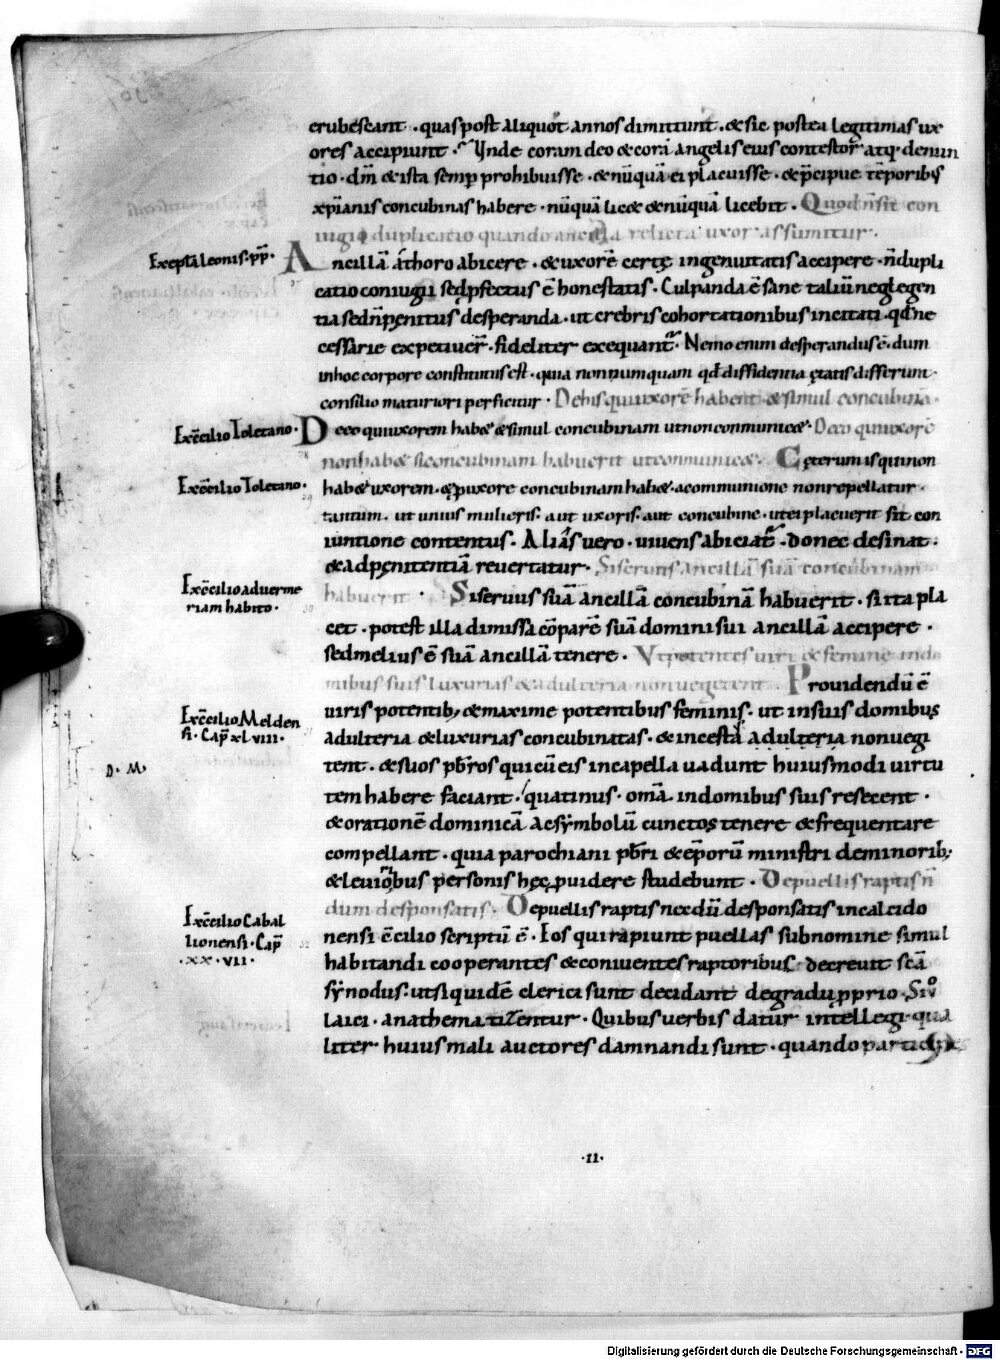 erubescant · quas post aliquot annos dimittunt · & sic postea legitimas ux
ores accipiunt · Unde coram deo & corā angelis eius contestor atq· denun
tio · dm̄ & ista semp prohibuisse · & nūquā ei placuisse · & p̄cipue tēporib;
xp̄ianis concubinas habere · nūquā lic& & nūquā licebit · Quod n̄ sit con
iugii duplicatio quando ancilla relicta uxor assumitur ·
Ex epla leonis · pp ·
Ancillā a thoro abicere · & uxorē certę ingenuitatis accipere · n̄ dupli
catio coniugii sed pfectus ē honestatis · Culpanda ē sane taliū neglegen
tia sed n̄ pęnitus desperanda · ut crebris cohortationibus incitati · qd ne
cessarie expetiuer̄ · fideliter exequant · Nemo enim desperandus ē · dum
in hoc corpore constitutus est · quia nonnumquam qd diffidentia ętatis differunt ·
consilio maturiori perficitur · De his qui uxorē habent & simul concubinā ·
Ex c̄cilio Toletano ·
De eo qui uxorem hab& & simul concubinam ut non communic& · De eo qui uxorē
non hab& si concubinam habuerit ut communic& · Cęterum is qui non
Ex c̄cilio Toletano ·
hab& uxorem · & p uxore concubinam hab& · a communione non repellatur ·
tantum · ut unius mulieris · aut uxoris · aut concubine · ut ei placuerit sit con
iunctione contentus · Aliās uero · uiuens abiciat · donec desinat ·
& ad pęnitentiā reuertatur · Si seruus ancillā suā concubinam
Ex c̄cilio ad uerme
riam habito ·
habuerit · Si seruus suā ancillā concubinā habuerit · si ita pla
cet · potest illa dimissa cōparē suā domini sui ancillā accipere ·
sed melius ē suā ancillā tenere · Ut potentes uiri & feminę in do
mibus suis luxurias & adulteria non uegetent · Prouidendū ē
Ex c̄cilio Melden
si · Cap xlviii ·
uiris potentib; & maxime potentibus feminis · ut in suis domibus
adulteria & luxurias concubinatas · & incesta adulteria non uegi
D · M ·
tent · & suos pb̄ros qui cū eis in capella uadunt huiusmodi uirtu
tem habere faciant · quatinus · om̄a · in domibus suis resecent ·
& orationē dominicā ac symbolū cunctos tenere & frequentare
compellant · quia parochiani pb̄ri & ep̄orū ministri de minorib;
& leuiorbus personis hęc puidere studebunt · De puellis raptis n̄
dum desponsatis · De puellis raptis nec dū desponsatis in calcido
Ex c̄cilio Cabal
lionensi · Cap
· xx · vii ·
nensi c̄cilio scriptū ē · Eos qui rapiunt puellas sub nomine simul
habitandi cooperantes & coniuentes raptoribus · decreuit scā
synodus · ut si quidē clerici sunt decidant de gradu pprio · Si uo
laici · anathematizentur · Quibus uerbis datur intellegi · qua
liter huius mali auctores damnandi sunt · quando participes
· II ·
Digitalisierung gefördert durch die Deutsche Forschungsgemeinschaft - DFG